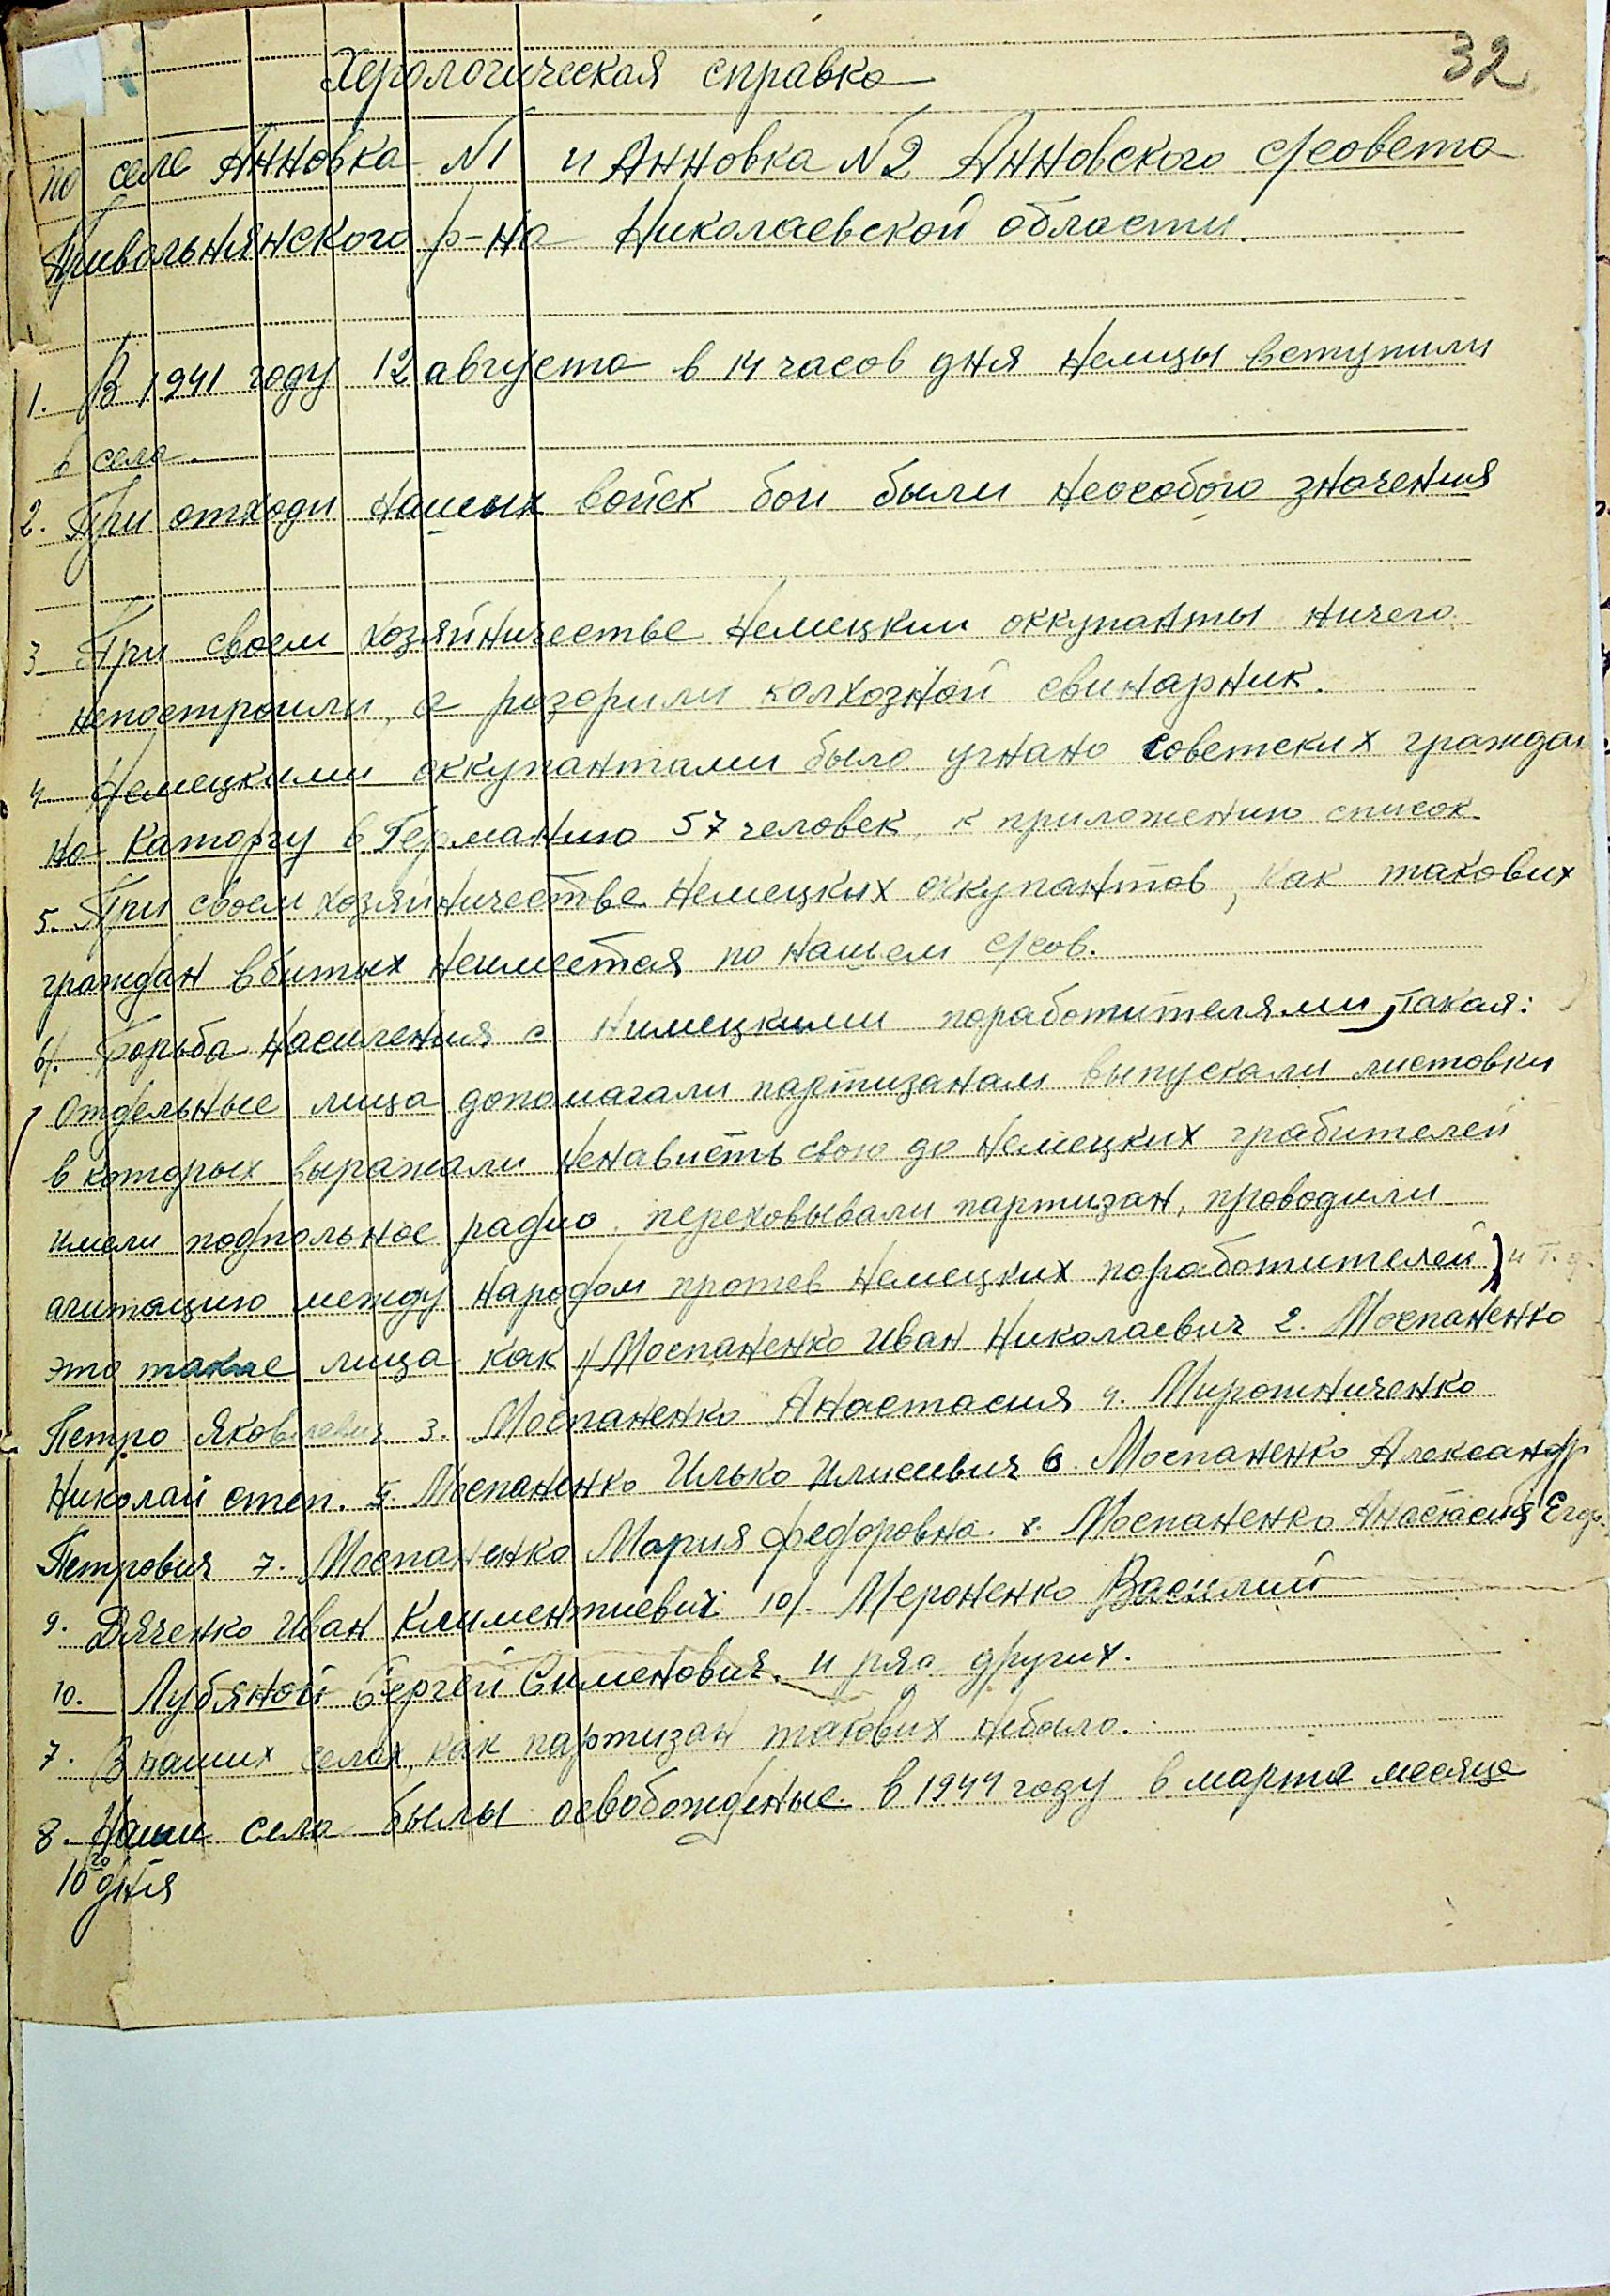 32
Херологическая справка
по селе Анновка №1 и Анновка №2 Анновского с/совета
Привольнянского р-на Николаевской области.
1. В 1941 году 12 августа в 14 часов дня немцы вступили
в село.
2. При отходи нашых войск бои были неособого значения
3 При своем хозяйничестве немецкии оккупанты ничего
непостроили, а разорили колхозной свинарник.
4 Немецкими оккупантами было угнано советских граждан
на каторгу в Германию 57 человек, к приложению список
5. При своем хозяйничестве немецких оккупантов, как таковых
граждан вбитых неимеется по нашем с/сов.
6/. Борьба насиления с нимецкими поработителями, такая:
Отдельные лица допомагали партизанам выпускали листовки
в которых выражали ненависть свою до немецких грабителей
имели подпольное радио, переховывали партизан, проводили
агитацию между народом протев немецких поработителей) и т.д.
это такие лица как 1/ Моспаненко Иван Николаевич 2. Моспаненко
Петро Яковлевич 3. Моспаненко Анастасия 4. Мирошниченко
Николай степ. 5. Моспаненко Илько Илисевич 6. Моспаненко Александр
Петрович 7. Моспаненко Мария Федоровна. 8. Моспаненко Анастасия Егор.
9. Дяченко Иван Климентиевич 10/. Мероненко Василий
10. Лубяной Сергей Сименович. и ряд других.
7. В наших селах, как партизан таковых небыло.
8. Наши села былы освобожденые в 1944 году в марте месяце
10го дня